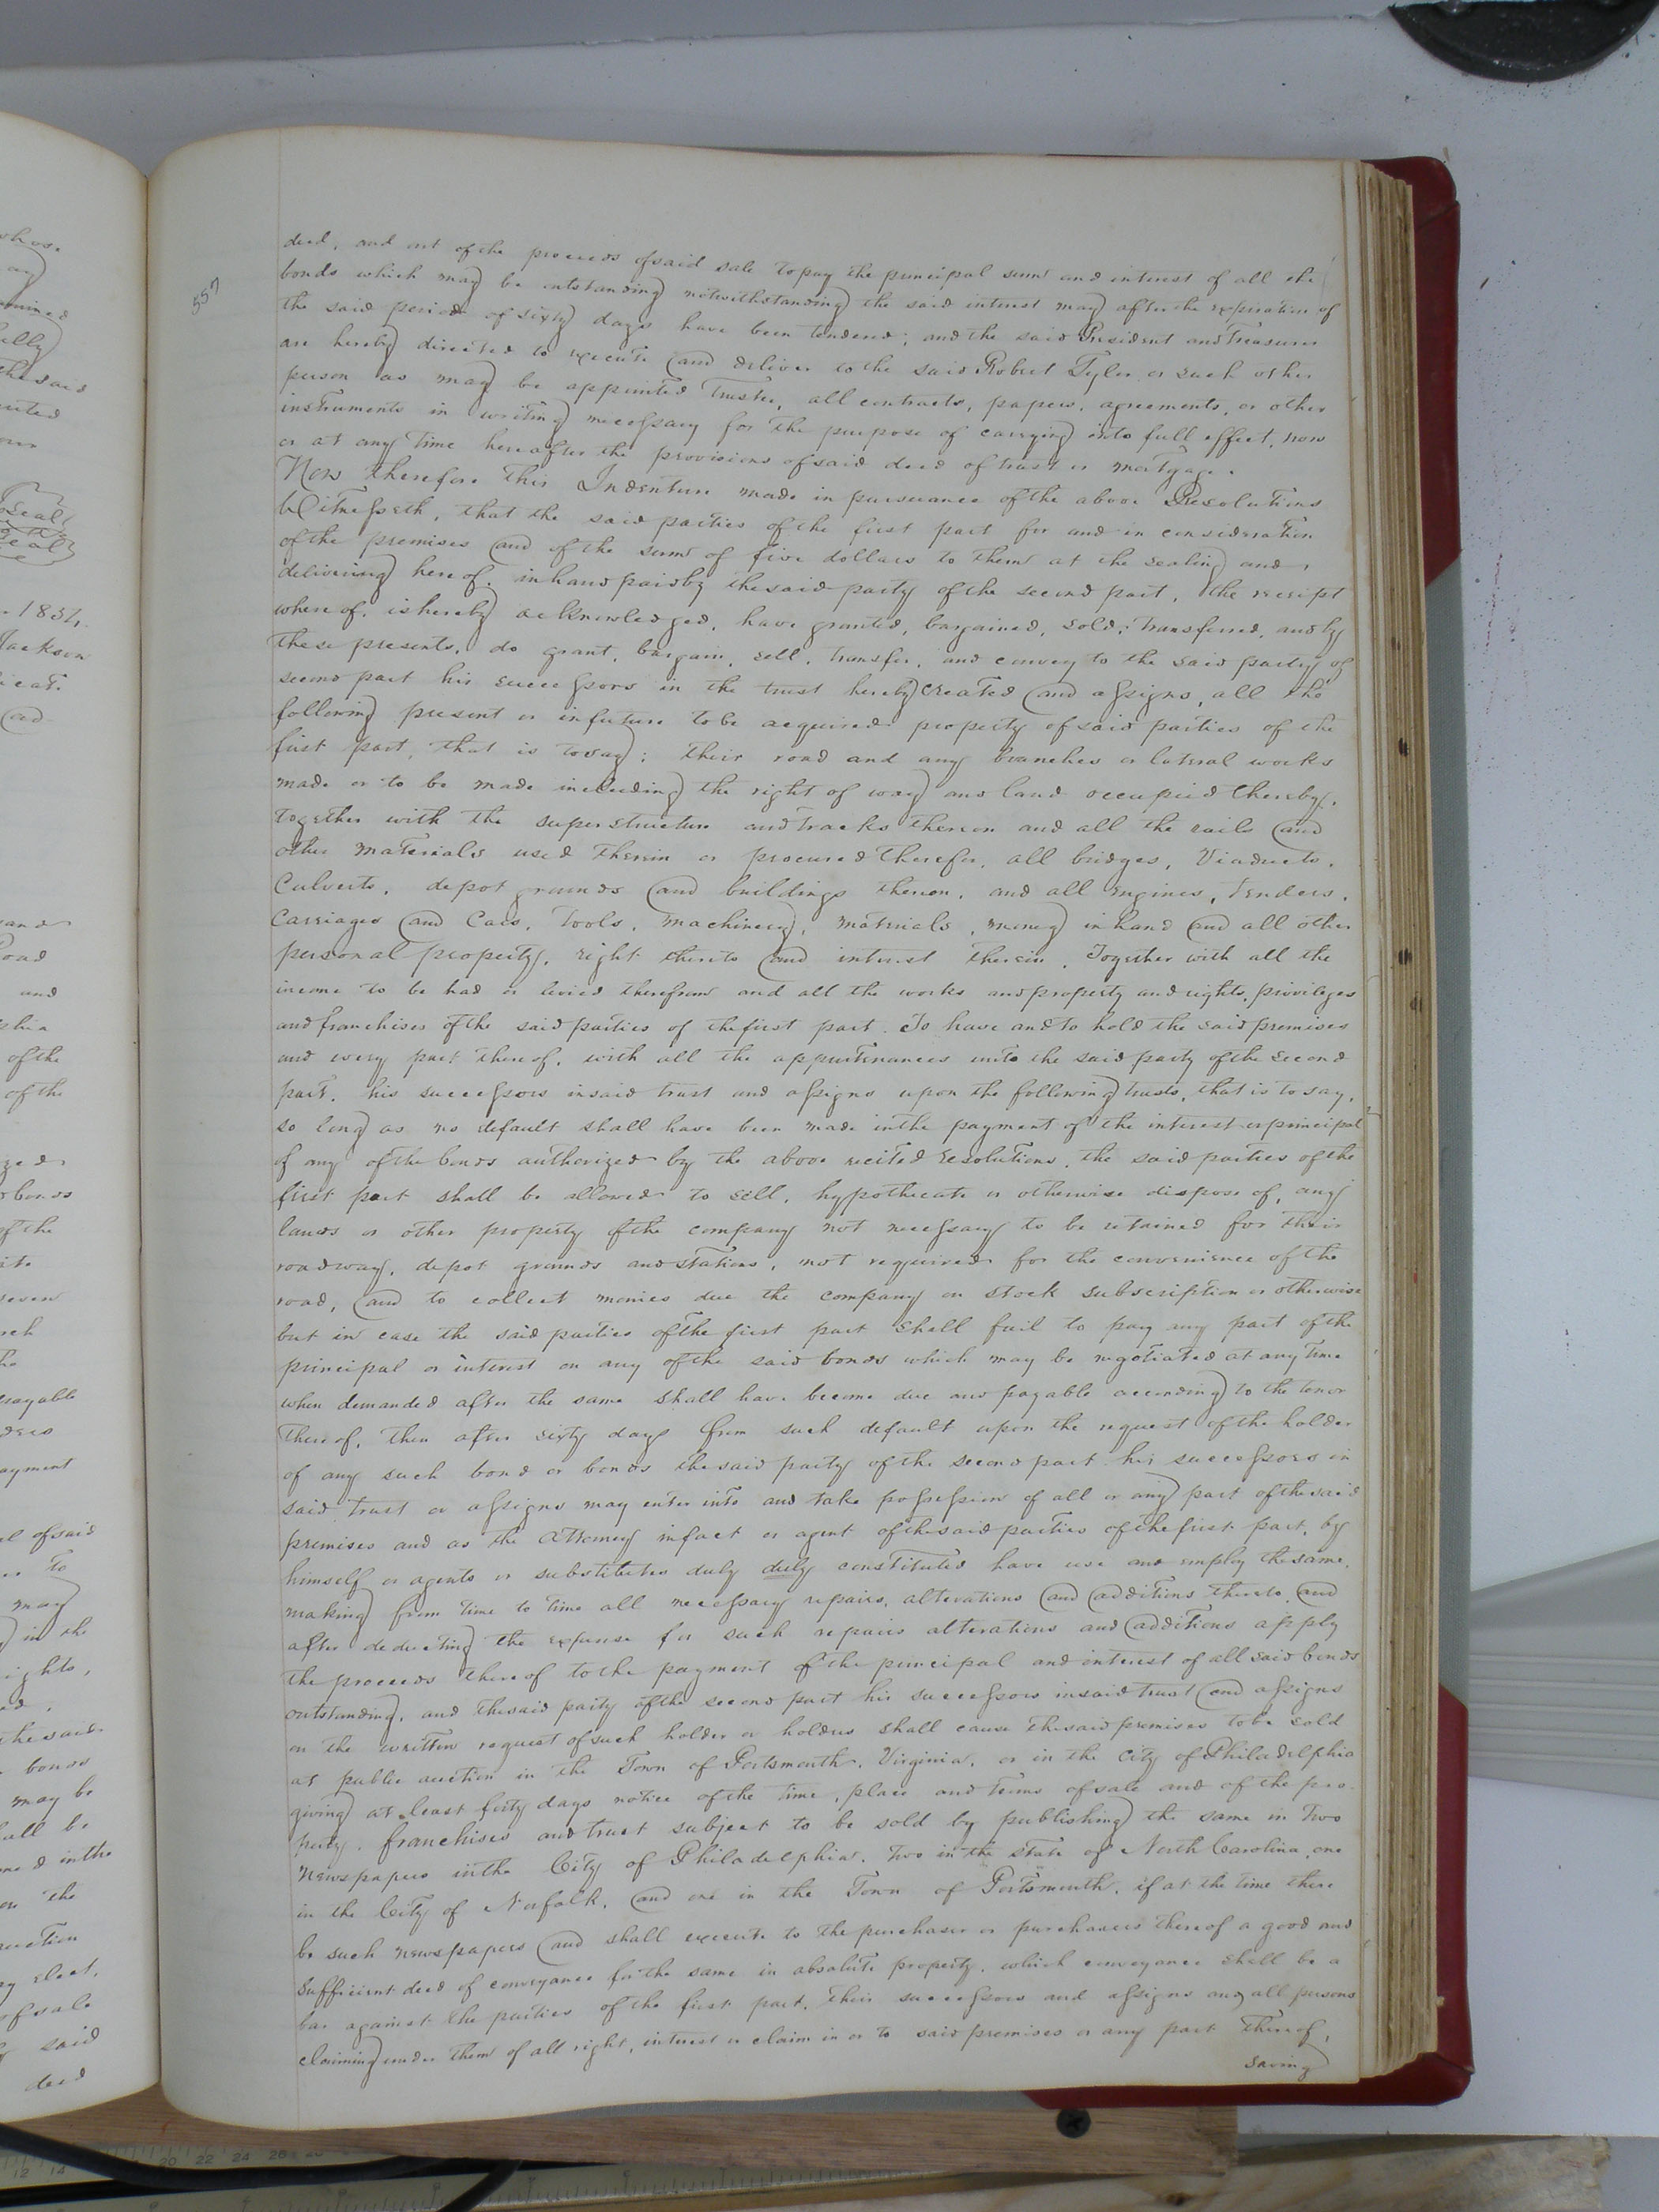 557
deed, and out of the proceeds of said sale to pay the principal sum and interest of all the
bonds which may be outstanding notwithstanding the said interest may after the expiration of
the said period of sixty days have been tendered; and the said President and Treasurer
are hereby directed to execute and deliver to the said Robert Tyler or such other
person as may be appointed Trustee, all contracts, papers, agreements, or other
instruments in writing necessary for the purpose of carrying into full effect, now
or at any time hereafter the provisions of said deed of trust or mortgage.
Now therefore this Indenture made in pursuance of the above Resolutions
Witnesseth, that the said parties of the first part for and in consideration
of the premises and of the sum of five dollars to them at the sealing and
delivering hereof, in hand paid by the said party of the second part, the receipt
whereof, is hereby acknowledged, have granted, bargained, sold, transferred, and by
these presents, do grant, bargain, sell, transfer, and convey to the said party of
second part his successors in the trust hereby created and assigns, all the
following present or in future to be acquired property of said parties of the
first part, that is to say; their road and any branches or lateral works
made or to be made including the right of way and land occupied thereby,
together with the superstructure and tracks thereon and all the rails and
other materials used therein or procured therefor, all bridges, Viaducts,
Culverts, depot grounds and buildings thereon, and all engines, Tenders,
Carriages and Cars, Tools, machinery, materials, money in hand and all other
personal property, right thereto and interest therein, Together with all the
income to be had or levied therefrom and all the works and property and rights, privileges
and franchises of the said parties of the first part. To have and to hold the said premises
and every part thereof, with all the appurtenances unto the said party of the second
part, his successors in said trust and assigns upon the following trusts, that is to say,
so long as no default shall have been made in the payment of the interest or principal
of any of the bonds authorized by the above recited resolutions, the said parties of the
first part shall be allowed to sell, hypothecate or otherwise dispose of, any
lands or other property of the company not necessary to be retained for their
roadway, depot grounds and stations, not required for the convenience of the
road, and to collect monies due the company on stock subscription or otherwise
but in case the said parties of the first part shall fail to pay any part of the
principal or interest on any of the said bonds which may be negotiated at any time
when demanded after the same shall have become due and payable according to the tenor
thereof, then after sixty days from such default upon the request of the holder
of any such bond or bonds the said party of the second part his successors in
said trust or assigns may enter into and take possession of all or any part of the said
premises and as the attorney in fact or agent of the said parties of the first part, by
himself or agents or substitutes duly duly constituted have use and employ the same,
making from time to time all necessary repairs, alterations and additions thereto and
after deducting the expense for such repairs alterations and additions apply
the proceeds thereof to the payment of the principal and interest of all said bonds
outstanding, and the said party of the second part his successors in said trust and assigns
on the written request of such holder or holders shall cause the said premises to be sold
at public auction in the Town of Portsmouth, Virginia, or in the City of Philadelphia
giving at least forty days notice of the time, place and terms of sale and of the pro-
perty, franchises and trust subject to be sold by publishing the same in Two
Newspapers in the City of Philadelphia, Two in the State of North Carolina, one
in the City of Norfolk, and one in the Town of Portsmouth, if at the time there
be such newspapers and shall execute to the purchaser or purchasers thereof a good and
sufficient deed of conveyance for the same in absolute property, which conveyance shall be a
bar against the parties of the first part, their successors and assigns and all persons
claiming under them of all right, interest or claim in or to said premises or any part thereof,
saving